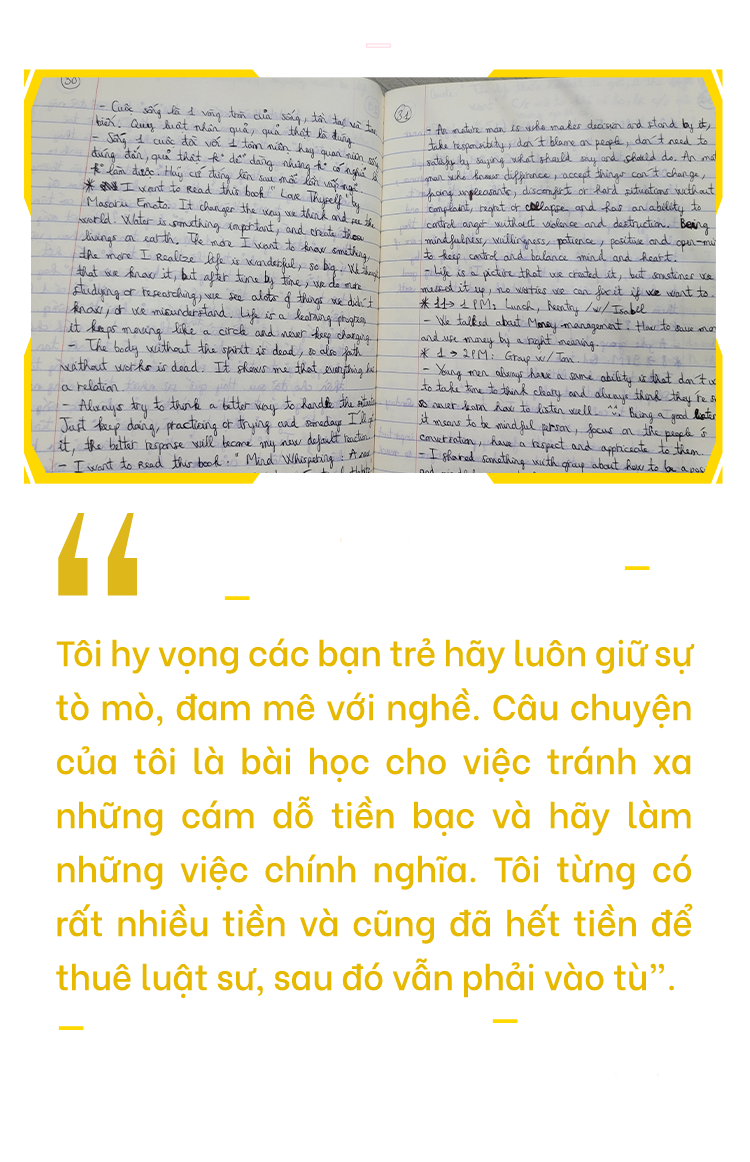 30
- Cuộc sống là 1 vòng tròn của sống, tồn tại và tan
biến. Cùng luật nhân quả, quả thật là đúng
- Sống 1 cuộc đời với 1 tâm niệm hay quan niệm sống
đúng đắn, quả thật k° dễ dàng nhưng k° có nghĩa là
k° làm được. Hãy cứ đứng lên sau mỗi lần vấp ngã
* I want to Read this book "Love Thyself" by
Masaru Emoto. It changer the way we think and see the
world. Water is something important, and create those
livings on earth. The more I want to know something,
the more I realize life is wonderful, so big. We
that we know it, but after time by time, we do more
studying or researching, we see alots of things we didn't
know, or we misunderstand. Life is a learning progress
it keeps moving like a circle and never keep changing.
- The body without the spirit is dead, so also faith
without works is dead. It shows me that everything has
a relation.
- Always try to think a better way to handle the
Just keep doing, practicing or trying and someday I'll
it, the better response will become my new default reaction.
- I want to Read this book: "Mind Whispering: A new
31
- An mature man is who maker decision and stand by it,
take responsibility, don't blame on people, don't need to
satisfy by saying what should say and should do. An
man who knows difference, accept things can't change,
facing unpleasants, discomfort or hard situations without
complaint, regret or collapse and has an ability to
control anger without violence and destruction. Being
mindfulness, willingness, patience, positive and open-
to keep control and balance mind and heart.
- Life is a picture that we created it, but sometimes we
messed it up, no worries we can fix it if we want to.
* 11 → 1 PM: Lunch, Reentry /w/ Isabel
- We talked about Money management. How to save
and use money by a right meaning.
* 1 → 2PM: Group w/ Tan.
- Young men always have a same ability is that don't
to take time to think cleary and always think they're
so never learn how to listen well. Being a good listener
it means to be mindful person, focus on the people's
conversation, have a respect and appriceate to them.
- I shared something with group about how to be a
“
Tôi hy vọng các bạn trẻ hãy luôn giữ sự
tò mò, đam mê với nghề. Câu chuyện
của tôi là bài học cho việc tránh xa
những cám dỗ tiền bạc và hãy làm
những việc chính nghĩa. Tôi từng có
rất nhiều tiền và cũng đã hết tiền để
thuê luật sư, sau đó vẫn phải vào tù”.